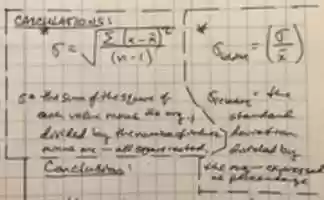 CALCULATIONS:
* σ = √ Σ (x - x̄)² / (n - 1)
σ = the sum of the square of
each value minus the avg.,
divided by the number of values
minus one — all square rooted.
Conclusions:
* = (σ / x̄)
= the
standard
deviation
divided by
the avg — expressed
as percentage